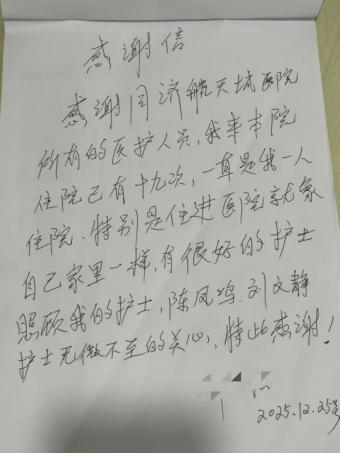 感谢信
感谢同济航天城医院
所有的医护人员,我来本院
住院已有十九次,一直是我一人
住院.特别是住进医院就象
自己家里一样,有很好的护士
照顾我的护士,陈凤鸣.刘文静
护士无微不至的关心,特此感谢!
2025.12.25号